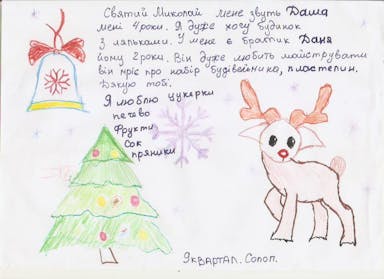 Святий Миколай мене звуть Даша
мені 4роки. Я дуже хочу будинок
з ляльками. У мене є братик Даня
йому 2роки. Він дуже любить майструвати
він мріє про набір будівельника, пластелін.
Дякую тобі.
Я люблю цукерки
печево
Фрукти
Сок
пряники